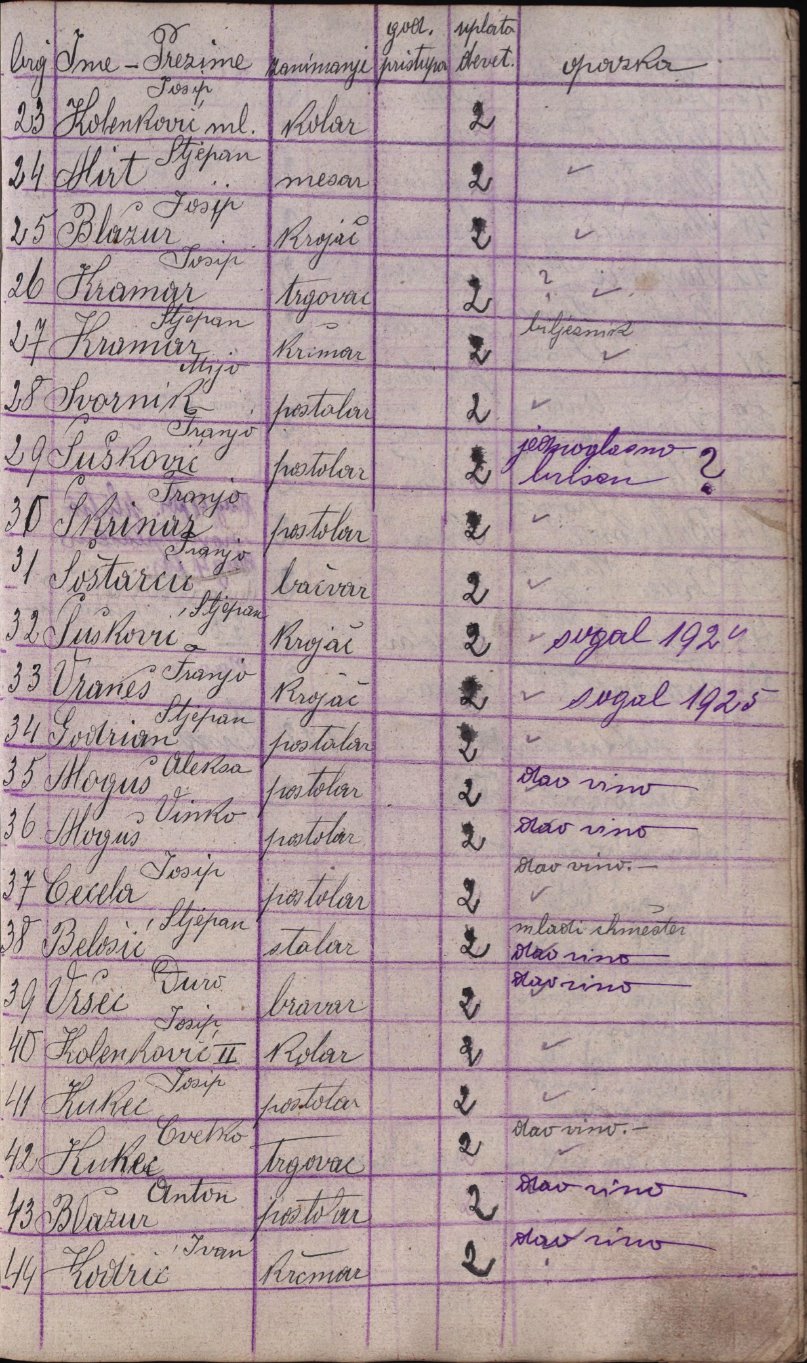 brj Ime - Prezime zanimanje god. pristupa uplata devet. opazka
23 Kolenković ml. Josip kolar 2
24 Mirt Stjepan mesar 2 ✓
25 Blažur Josip Krojač 2 ✓
26 Kramar Josip trgovac 2 ? ✓
27 Kramar Stjepan Krčmar 2 bilježnik ✓
28 Svornik Mijo postolar 2 ✓
29 Šušković Franjo postolar 2 jednoglasno brisan ?
30 Škrinar Franjo postolar 2 ✓
31 Šoštarcu Franjo bačvar 2 ✓
32 Šušković Stjepan Krojač 2 ✓ sugal 192
33 Vraneš Franjo Krojač 2 ✓ sugal 1925
34 Godrian Stjepan postolar 2 ✓
35 Moguš Aleksa postolar 2 dao vino
36 Moguš Vinko postolar 2 dao vino
37 Cecela Josip postolar 2 dao vino.- ✓
38 Belošić Stjepan stolar 2 mladi dao vino
39 Vršec Đuro bravar 2 dao vino
40 Kolenković II Josip Kolar 2 ✓
41 Kukec Josip postolar 2 ✓
42 Kukec Cvetko trgovac 2 dao vino.- ✓
43 Blažur Anton postolar 2 dao vino
44 Kodrić Ivan Krčmar 2 dao vino